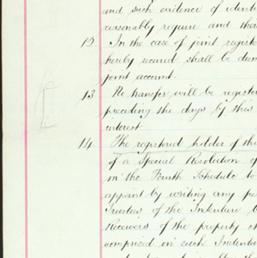 and such evidence of identi
reasonably require and tha
12. In the case of joint registe
hereby secured shall be deem
joint account.
13 No transfer will be register
preceding the days by this
interest.
14. The registered holder of this
of a Special Resolution of
in the Fourth Schedule to
appoint by writing any per
Trustees of the Indenture
Receivers of the property ch
comprised in such Indentur